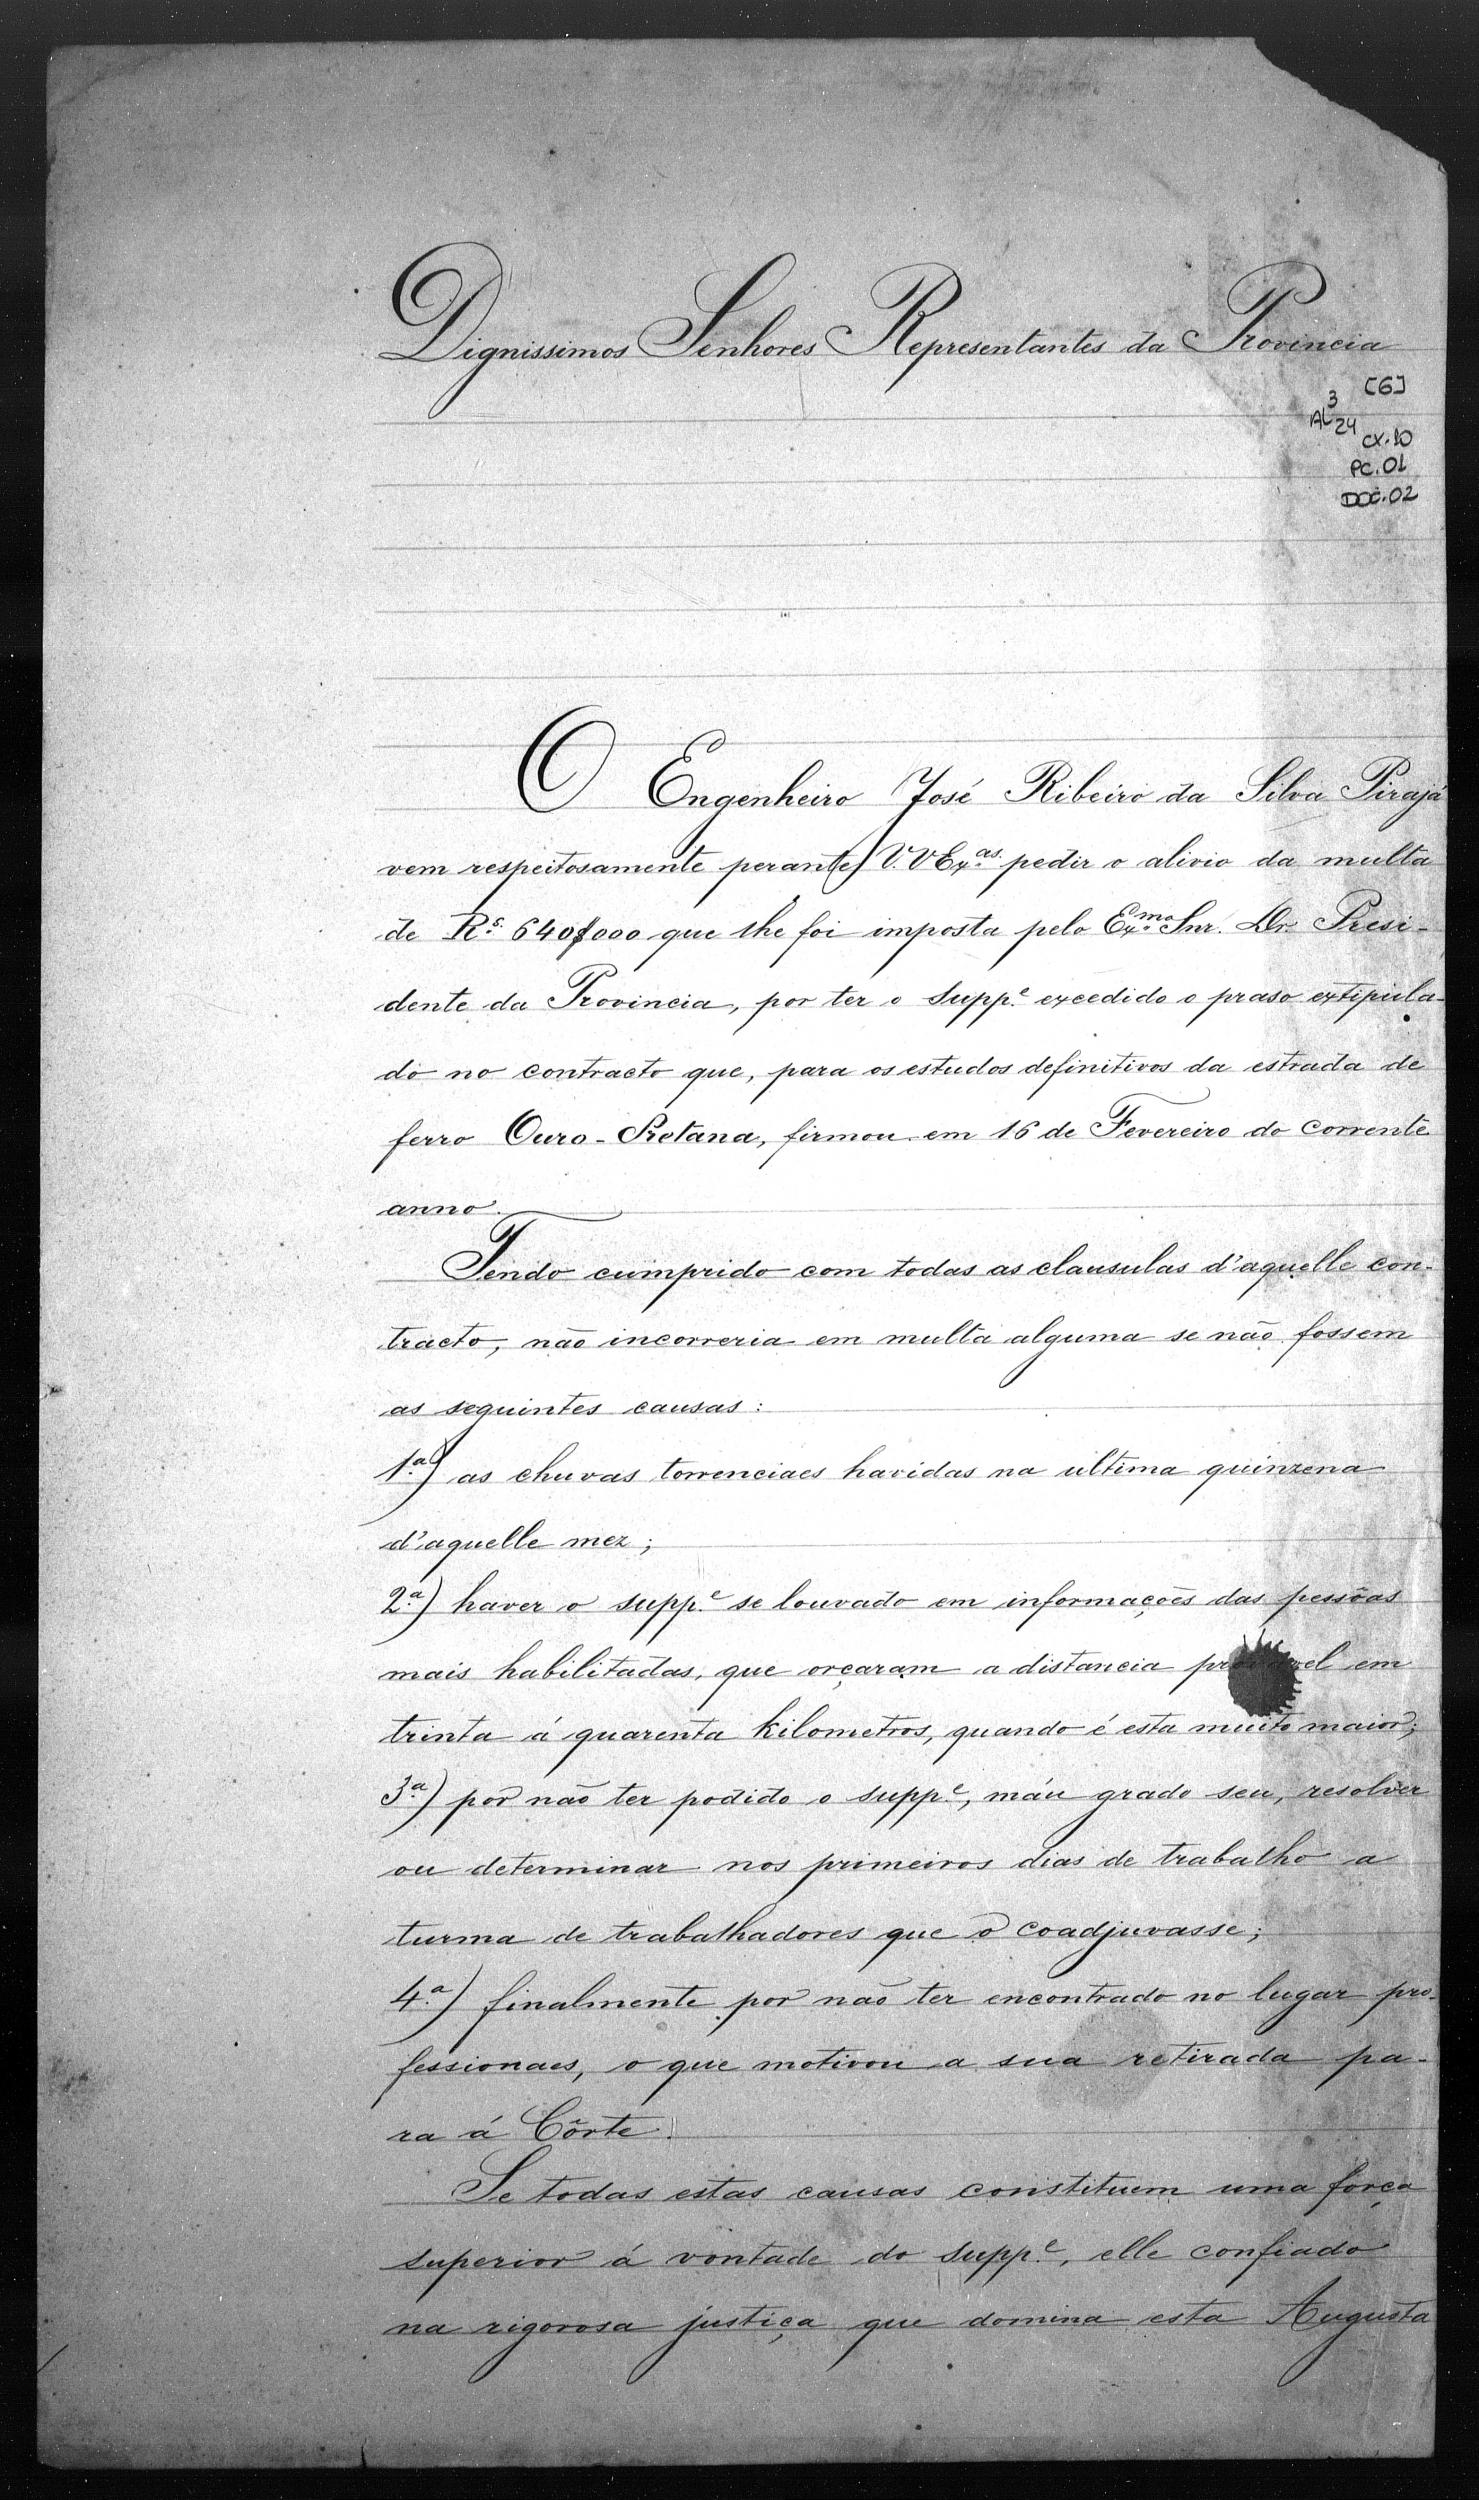 Dignissimos Senhores Representantes da Provincia
[6]
AL 3
24
CX.10
PC.01
DOC.02
O Engenheiro José Ribeiro da Silva Pirajá
vem respeitosamente perante V.VEx.as pedir o alivio da multa
de R.s 640$000 que lhe foi imposta pelo Ex.mo Snr. Dr. Presi-
dente da Provincia, por ter o Supp.e excedido o praso extipula-
do no contracto que, para os estudos definitivos da estrada de
ferro Ouro-Pretana, firmou em 16 de Fevereiro do corrente
anno.
Tendo cumprido com todas as clausulas d'aquelle con-
tracto, não incorreria em multa alguma se não fossem
as seguintes causas:
1.a) as chuvas torrenciaes havidas na ultima quinzena
d'aquelle mez;
2.a) haver o supp.e se louvado em informações das pessôas
mais habilitadas, que orçaram a distancia em
trinta á quarenta kilometros, quando é esta muito maior;
3.a) por não ter podido o supp.e, máu grado seu, resolver
ou determinar nos primeiros dias de trabalho a
turma de trabalhadores que o coadjuvasse;
4.a) finalmente por não ter encontrado no lugar pro-
fessionaes, o que motivou a sua retirada pa-
ra á Côrte.
Se todas estas causas constituem uma força
superior á vontade do supp.e, elle confiado
na rigorosa justiça que domina esta Augusta